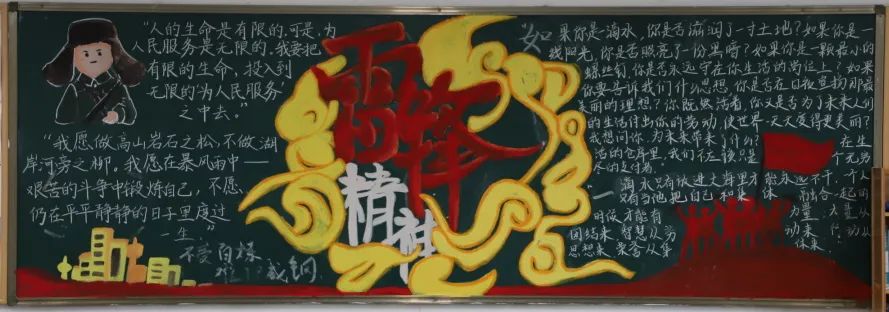 “人的生命是有限的,可是,为
人民服务是无限的,我要把
有限的生命,投入到
无限的“为人民服务”
之中去。”
“我愿做高山岩石之松,不做湖
岸河旁之柳。我愿在暴风雨中——
艰苦的斗争中锻炼自己,不愿
仍在平平静静的日子里度过
一生”
不受百炼
难以成钢
雷锋
精神
“如果你是一滴水,你是否滋润了一寸土地?如果你是一
线阳光,你是否照亮了一份黑暗?如果你是一颗最小的
螺丝钉,你是否永远守在你生活的岗位上?如果
你要告诉我们什么思想,你是否在日夜宣扬那最
美丽的理想?你既然活着,你又是否为了未来人们
的生活付出你的劳动,使世界一天天变得更美丽?
我想问你,为未来带来了什么?在生
活的仓库里,我们不应该只是个无穷
尽的支付者。
“一滴水只有放进大海里才能永远不干,一个人
只有当他把自己和集体 融合一起的
时候才能有 力量。力量从
团结来,智慧从劳 动来,行动从
思想来,荣誉从集 体来!